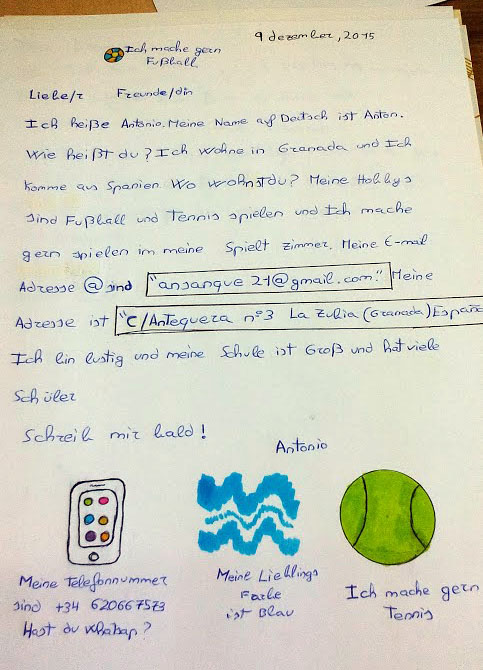 9 dezember, 2015
Ich mache gern
Fußball
Liebe/r Freunde/din
Ich heiße Antonio. Meine Name auf Deutsch ist Anton.
Wie heißt du? Ich wohne in Granada und Ich
komme aus Spanien. Wo wohnstdu? Meine Hobbys
sind Fußball und Tennis spielen und Ich mache
gern spielen im meine Spielt zimmer. Meine E-mail
Adresse @ sind "ansanque21@gmail.com." Meine
Adresse ist "C/Antequera nº3 La Zubia (Granada) España
Ich bin lustig und meine Schule ist Groß und hat viele
Schüler
Schreib mir bald!
Antonio
Meine Telefonnummer
sind +34 620667573
Hast du whatsap?
Meine Lieblings
Farbe
ist Blau
Ich mache gern
Tennis